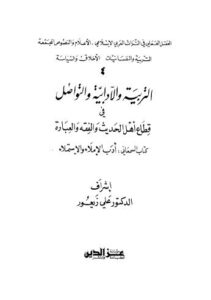 العقل العملي في التراث العربي الإسلامي، الأعلام والنصوص المجمعة
التربية والنفسانيات، الأخلاق والسياسة
٤
التربية والآدابية والتواصل
في
قطاع أهل الحديث والفقه والعبارة
كتاب السمعاني: أدب الإملاء والاستملاء
إشراف
الدكتور علي زيعور
عز الدين